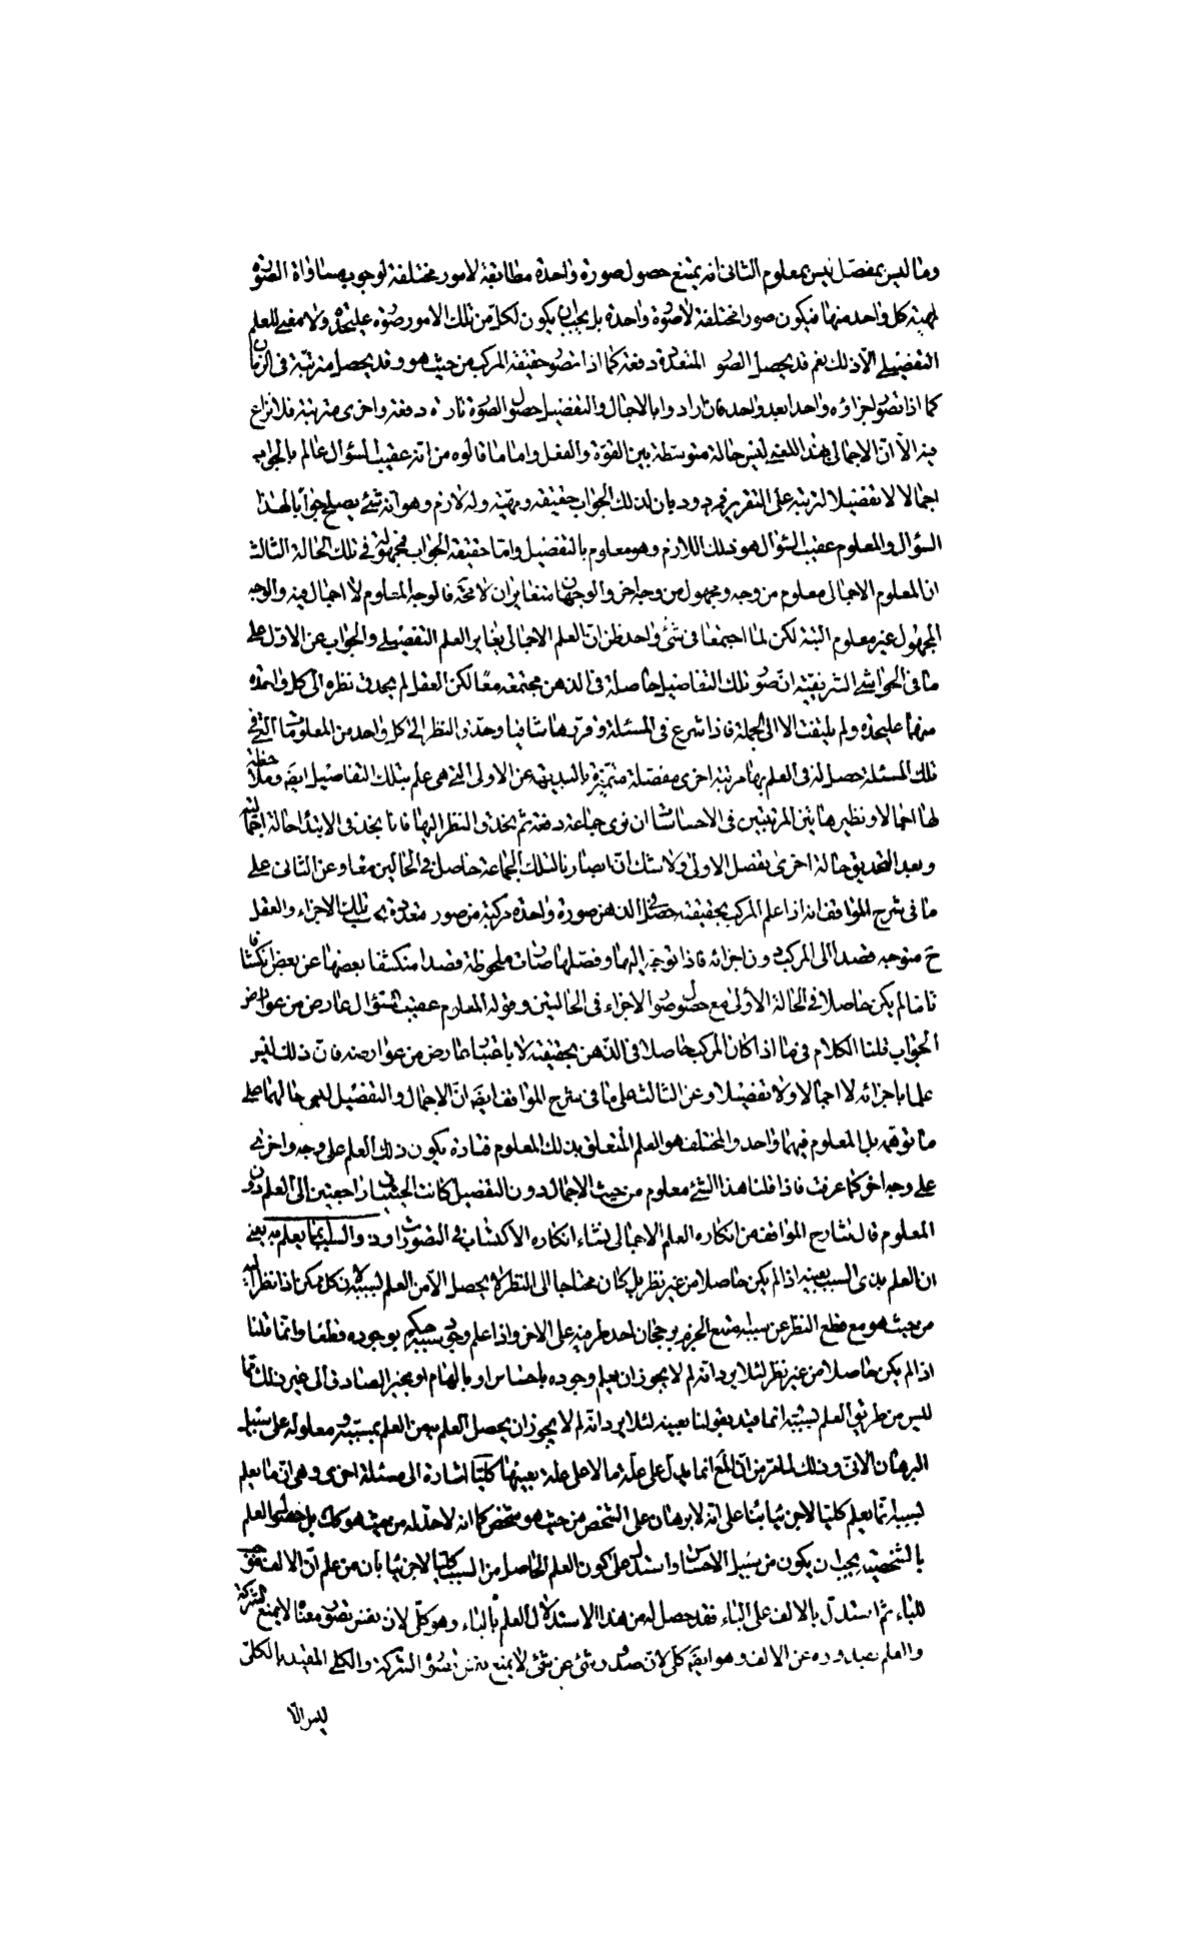 وما ليس بمفصل ليس بمعلوم الثانى انه يمتنع حصول صورة واحدة مطابقة لامور مختلفة لوجوب مساواة الصورة
لمهية كل واحد منها فيكون صورا مختلفة لا صورة واحدة بل يجب ان يكون لكل من تلك الامور صورة عليحدة ولا معنى للعلم
التفصيلى الا ذلك نعم قد يحصل الصور المتعددة دفعة كما اذا تصور حقيقة المركب من حيث هو وقد يحصل مترتبة فى الزمان
كما اذا تصور اجزاؤه واحدا بعد واحد فان ارادوا بالاجمال والتفصيل حصول الصورة تارة دفعة واخرى مترتبة فلا نزاع
فيه الا ان الاجمالى بهذا المعنى ليس حالة متوسطة بين القوة والفعل واما ما قالوه من انه عقيب السؤال عالم بالجواب
اجمالا لا تفصيلا لترتبه على التقرير فمردود بان لذلك الجواب حقيقة ومهية وله لازم وهو انه شئ يصلح جوابا لهذا
السؤال والمعلوم عقيب السؤال هو ذلك اللازم وهو معلوم بالتفصيل واما حقيقة الجواب فمجهولة فى تلك الحالة الثالث
ان المعلوم الاجمالى معلوم من وجه ومجهول من وجه اخر والوجهان متغايران لا محة فالوجه المعلوم لا اجمال فيه والوجه
المجهول غير معلوم البتة لكن لما اجتمعا فى شئ واحد ظن ان العلم الاجمالى يغاير العلم التفصيلى والجواب عن الاول على
ما فى الحواشى الشريفية ان صور تلك التفاصيل حاصلة فى الذهن مجتمعة معا لكن العقل لم يحدق نظره الى كل واحدة
منها عليحدة ولم يلتفت الا الى الجملة فاذا شرع فى المسئلة وقررها شافيا وحدق النظر الى كل واحد من المعلومات التى فى
تلك المسئلة حصل له فى العلم بها مرتبة اخرى مفصلة متميزة بالبديهة عن الاولى التى هى علم بتلك التفاصيل ايضه وملاحظة
لها اجمالا ونظير هاتين المرتبتين فى الاحساسات ان نرى جماعة دفعة ثم نحدق النظر اليها فانا نجد فى الابتداء حالة اجمالية
وبعد التحديق حالة اخرى تفصل الاولى ولا شك ان ابصارنا لتلك الجماعة حاصل فى الحالين معا وعن الثانى على
ما فى شرح المواقف انه اذا علم المركب بحقيقته حصل فى الذهن صورة واحدة مركبة من صور متعددة بحسب تلك الاجزاء والعقل
ح متوجه قصدا الى المركب دون اجزائه فاذا توجه اليها وفصلها صارت ملحوظة قصدا منكشفا بعضها عن بعض انكشافا
تاما لم يكن حاصلا فى الحالة الاولى مع حصول صور الاجزاء فى الحالتين وقوله المعلوم عقيب السؤال عارض من عوارض
الجواب قلنا الكلام فيما اذا كان المركب حاصلا فى الذهن بحقيقته لا باعتبار عارض من عوارضه فان ذلك ليس
علما باجزائه لا اجمالا ولا تفصيلا وعن الثالث على ما فى شرح المواقف ايضه ان الاجمال والتفصيل ليس حالهما على
ما توهمه بل المعلوم فيهما واحد والمختلف هو العلم المتعلق بذلك المعلوم فتارة يكون ذلك العلم على وجه واخرى
على وجه اخر كما عرفت فاذا قلنا هذا الشئ معلوم من حيث الاجمال دون التفصيل كانت الحيثيتان راجعتين الى العلم دون
المعلوم قال شارح المواقف من انكاره العلم الاجمالى نشاء انكاره الاكتساب فى التصورات وذو السبب انما يعلم به يعنى
ان العلم بذى السبب بعينه اذا لم يكن حاصلا من غير نظر بل كان محتاجا الى النظر لا يحصل الا من العلم بسببه لان كل ممكن اذا نظر اليه
من حيث هو مع قطع النظر عن سببه منع الجزم برجحان احد طرفيه على الاخر واذا علم وجود سببه حكم بوجوده قطعا وانما قلنا
اذا لم يكن حاصلا من غير نظر لئلا يرد انه لم لا يجوز ان يعلم وجوده باحساس او بالهام او بخبر الصادق الى غير ذلك مما
ليس من طريق العلم بسببه انما قيد بقولنا بعينه لئلا يرد انه لم لا يجوز ان يحصل العلم به من العلم بمسببه ومعلوله على سبيل
البرهان الانى وذلك لما تقرر من ان المع انما يدل على علة ما لا على علة بعينها كليا اشارة الى مسئلة اخرى وهى ان ما يعلم
بسببه انما يعلم كليا لا جزئيا بناء على انه لا برهان على الشخص من حيث هو شخص كما انه لا حد له من حيث هو كك بل حصول العلم
بالشخصية يجب ان يكون من سبيل الاحساس واستدل على كون العلم الحاصل من السبب كليا لا جزئيا بان من علم ان الالف موجب
للباء ثم استدل بالالف على الباء فقد حصل له من هذا الاستدلال العلم بالباء وهو كلى لان نفس تصور معناه لا يمنع الشركة
والعلم بصدوره عن الالف وهو ايضه كلى لان صدور شئ عن شئ لا يمنع نفس تصوره الشركة والكلى المقيد بالكلى
ليس الا